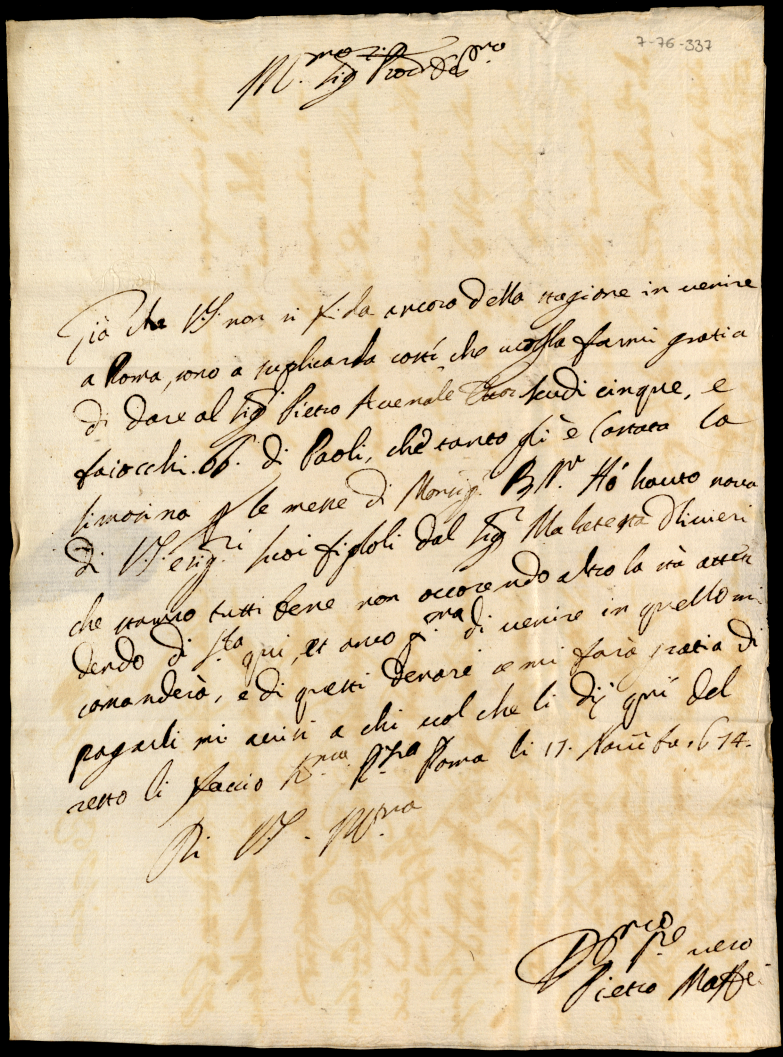 7-76-337
M.mo Sig.r Prone Oss.mo
Già che V.S. non si fida ancora della stagione in venire
a Roma, sono a suplicarla costí che voglia farmi gratia
di dare al Sig.r Pietro Avenale scudi cinque, e
baiocchi .66. di Paoli, che tanto gli è costata la
limosina p le messe di Monsig.r Hó hauto nova
di V.S. e sig.ri suoi figloli dal Sig.r Malatesta Olivieri
che stanno tutti bene non occorendo altro la stà atten
dendo di S.ta qui, et anco p.ma di venire in quello mi
comanderà, e di questi denari se mi farà gratia di
pagarli mi avisi a chi vol che li dij quí del
resto li faccio R.nza Roma li 17. Novẽbr 1674.
Di V.S. M.
Do.mo S.re vero
Pietro Maffei